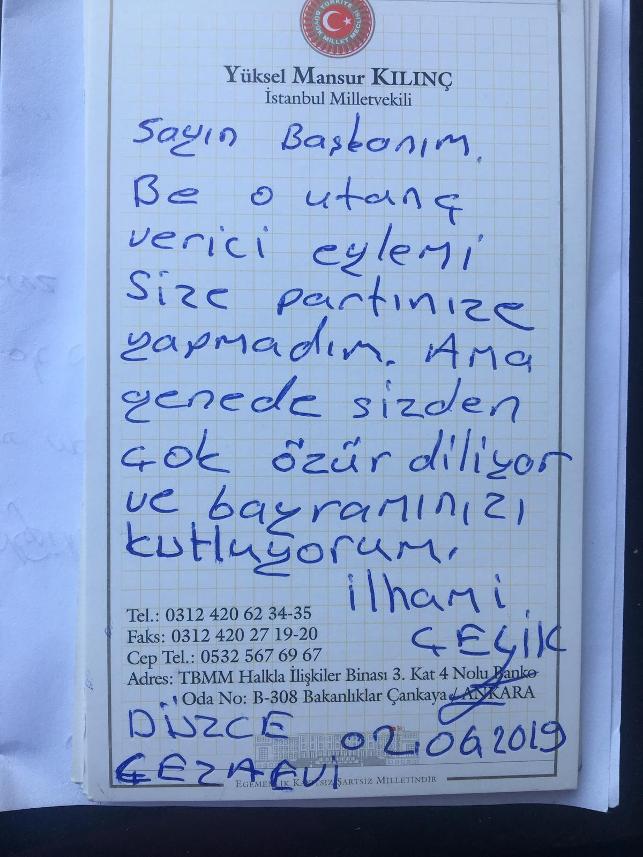 Yüksel Mansur KILINÇ
İstanbul Milletvekili
Sayın Başkanım.
Be o utanç
verici eylemi
Size partinize
yapmadım. Ama
genede sizden
çok özür diliyor
ve bayramınızı
kutluyorum.
ilhami
ÇELİK
Tel.: 0312 420 62 34-35
Faks: 0312 420 27 19-20
Cep Tel.: 0532 567 69 67
Adres: TBMM Halkla İlişkiler Binası 3. Kat 4 Nolu Banko
Oda No: B-308 Bakanlıklar Çankaya / ANKARA
DÜZCE 02.06.2019
CEZAEVİ
EGEMENLİK KAYITSIZ ŞARTSIZ MİLLETİNDİR